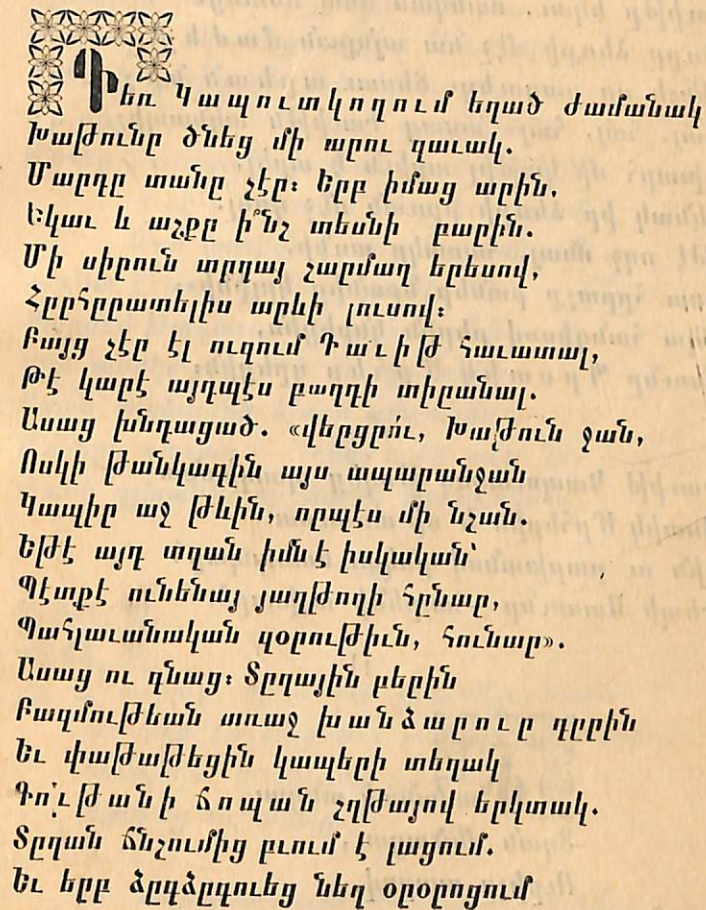 Դեռ Կապուտկողում եղած ժամանակ
Խաթունը ծնեց մի արու զաւակ.
Մարդը տանը չէր։ Երբ իմաց արին,
Եկաւ և աչքը ի՞նչ տեսնի բարին.
Մի սիրուն տղդայ շարմաղ երեսով,
Հըրհըրատելիս արևի լուսով։
Բայց չէր էլ ուզում Դաւիթ հաւատալ,
Թէ կարէ այդպէս բաղդի տիրանալ.
Ասաց խնդացած. «վերցրո՛ւ, Խաթուն ջան,
Ոսկի թանկագին այս ապարանջան
Կապիր աջ թևին, որպէս մի նշան.
Եթէ այդ տղան իմն է իսկական՝
Պէտքէ ունենայ յաղթողի հընար,
Պահլաւանական զօրութիւն, հունար».
Ասաց ու գնաց։ Տըղային բերին
Բազմութեան առաջ խանձարուը դըրին
Եւ փաթաթեցին կապերի տեղակ
Գո՛ւթանի ճոպան շղթայով երկտակ.
Տըղան ճնշումից բւում է լացում.
Եւ երբ ձըգձըգուեց նեղ օրօրոցում